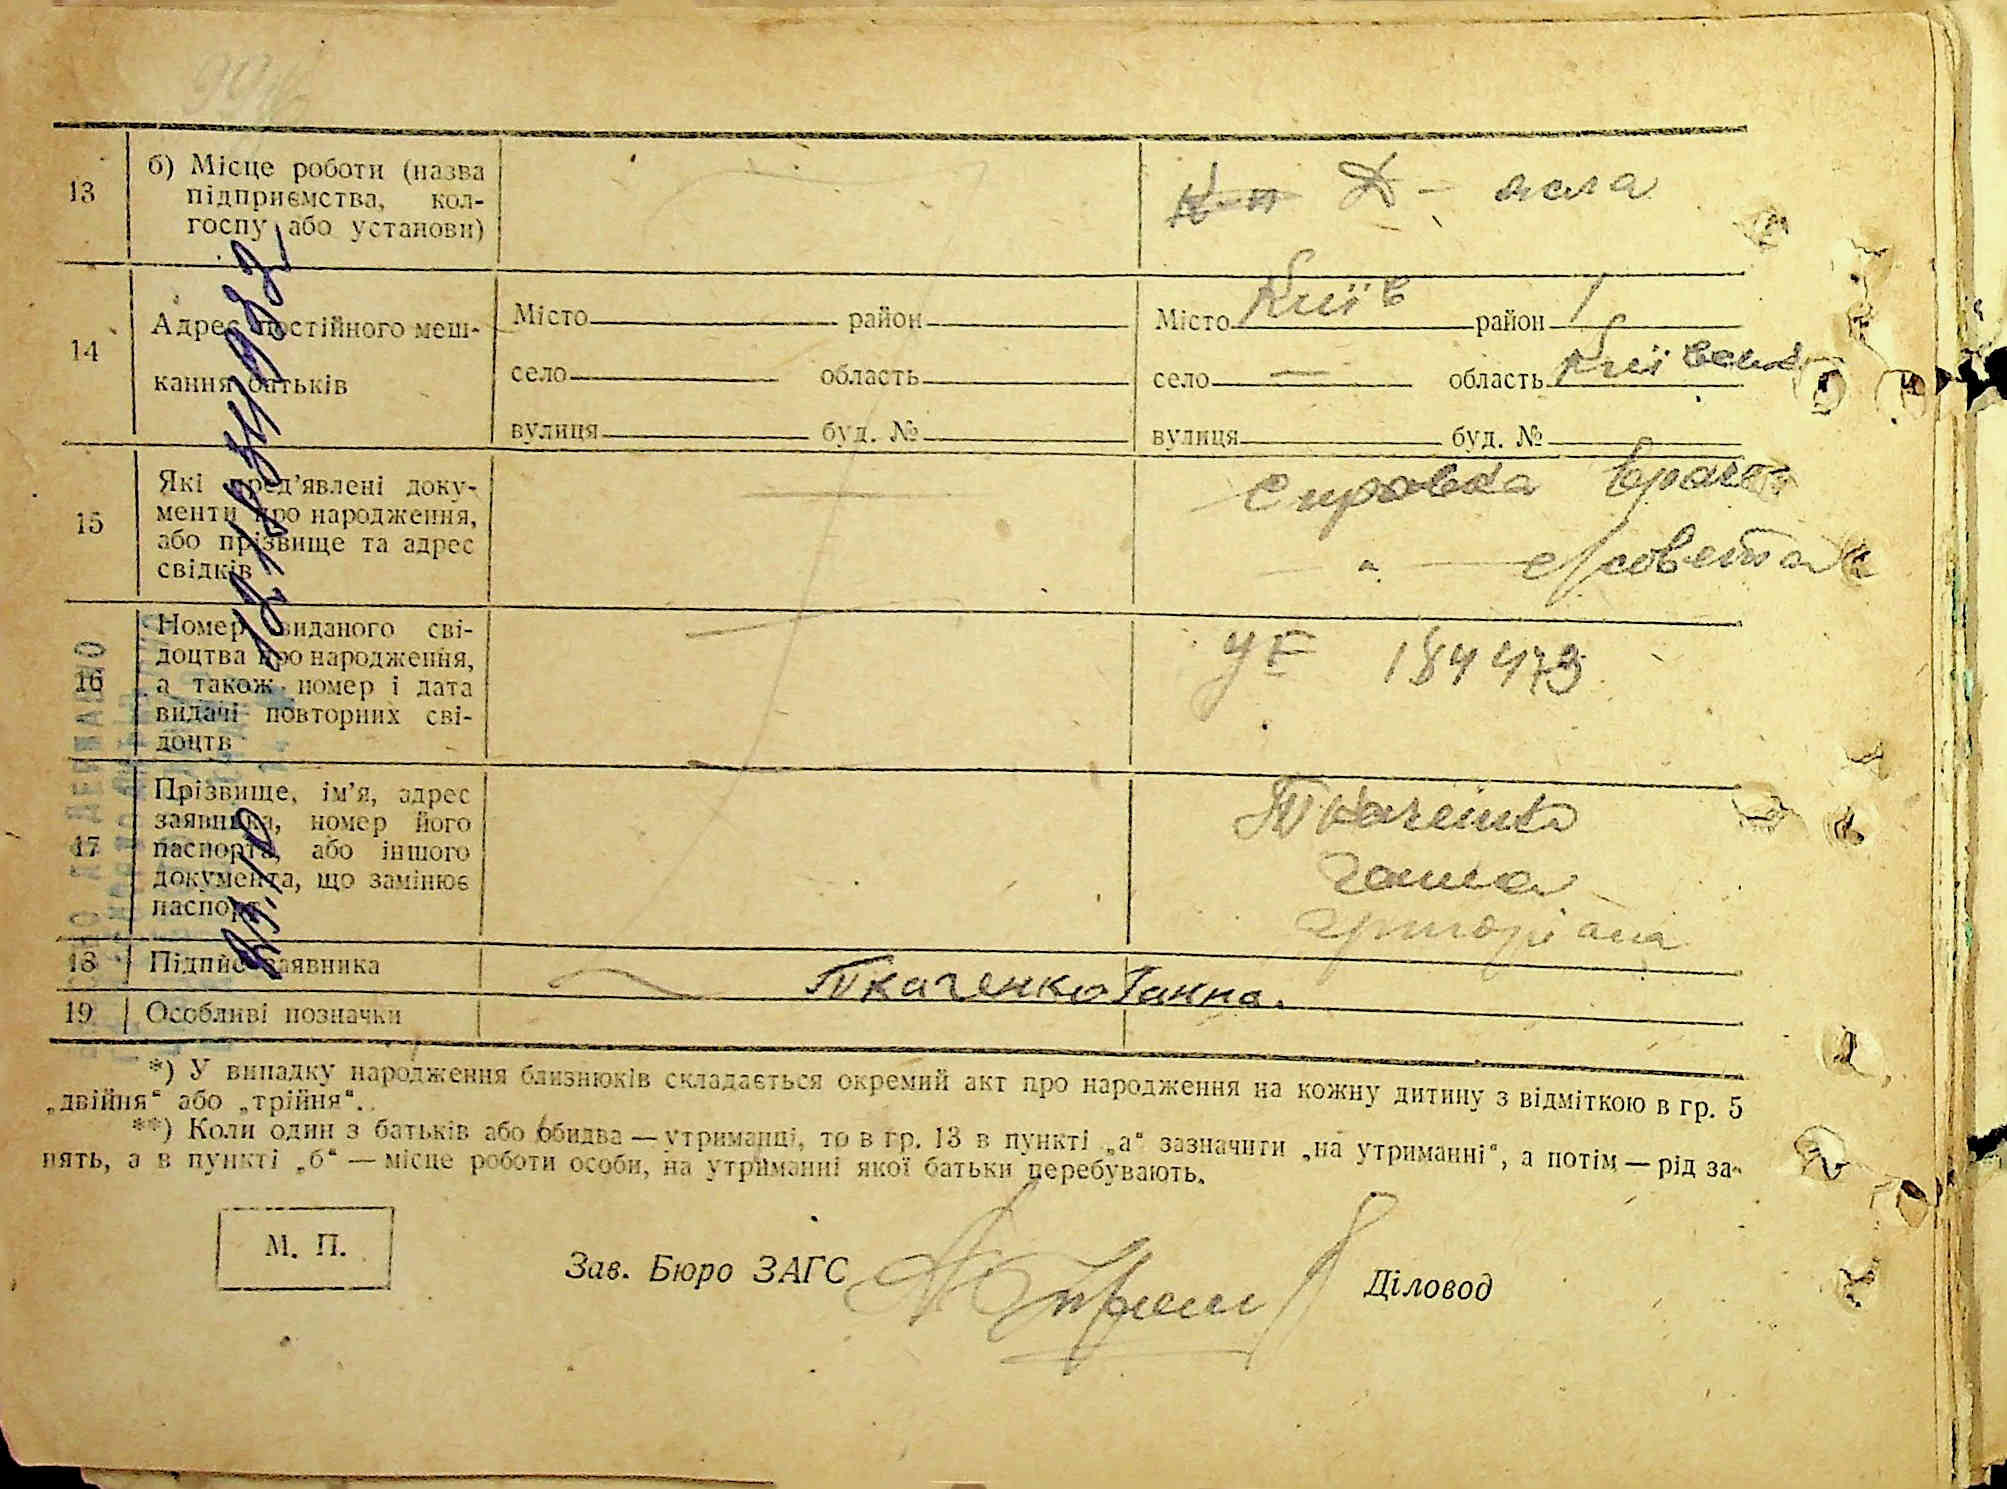 13
б) Місце роботи (назва
підприємства, кол-
госпу або установи)
Д - ясла
14
Адрес постійного меш-
кання батьків
Місто район
село область
вулиця буд. №
Місто Київ район
село — область
вулиця буд. №
15
Які пред'явлені доку-
менти про народження,
або прізвище та адрес
свідків
Справка врача
— " — с/совета
16
Номер виданого сві-
доцтва про народження,
а також номер і дата
видачі повторних сві-
доцтв
УЕ 184473
17
Прізвище, ім'я, адрес
заявника, номер його
паспорта, або іншого
документа, що замінює
паспорт
Ткаченко
Ганна
18
Підпис заявника
Ткаченко Ганна.
19
Особливі позначки
*) У випадку народження близнюків складається окремий акт про народження на кожну дитину з відміткою в гр. 5
„двійня“ або „трійня“.
**) Коли один з батьків або обидва — утриманці, то в гр. 13 в пункті „а“ зазначити „на утриманні“, а потім — рід за-
нять, а в пункті „б“ — місце роботи особи, на утриманні якої батьки перебувають.
М. П.
Зав. Бюро ЗАГС
Діловод